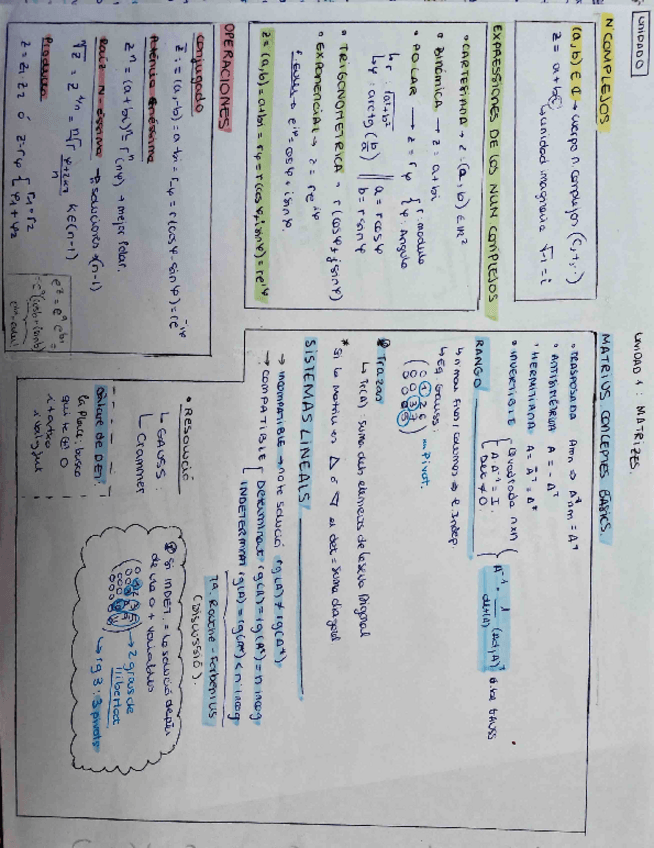 UNIDAD 0
N COMPLEJOS
(a, b) ∈ ₵ → cuerpo n complejos (C, +, ·)
z = a + bi → unidad imaginaria √-1 = i
EXPRESSIONES DE LOS NUM COMPLEJOS
• CARTESIANA → z = (a, b) ∈ ℝ²
• BINÓMICA → z = a + bi
• POLAR → z = rφ { r: modulo
φ: Angulo
↳ r = √a²+b²
↳ φ = arctg (b/a) || a = r cos φ
b = r sin φ
• TRIGONOMETRICA = r (cos φ + i sin φ)
• EXPONENCIAL → z = r e^iφ
e^iφ = cos φ + i sin φ
z = (a, b) = a + bi = rφ = r (cos φ + i sin φ) = r e^iφ
OPERACIONES
Conjugado
z̄ = (a, -b) = a - bi = r-φ = r (cos φ - i sin φ) = r e^-iφ
Potencia enésima
zⁿ = (a + bi)ⁿ = rⁿ (nφ) → mejor Polar.
Raiz N-ésima → n soluciones (n-1)
ⁿ√z = z^1/n = ⁿ√r φ+2πk / n k ∈ (n-1)
Producto
z = z1 · z2 ó z = rφ { r1 · r2
φ1 + φ2
UNIDAD 1 : MATRIZES.
MATRIUS CONCEPTES BASICS.
• TRASPOSADA Amn → Aᵗnm = Aᵀ
• ANTISIMÉTRICA A = -Aᵀ
• INVERTIBLE { Quadrada nxn
A A⁻¹ = I
Det ≠ 0
A⁻¹ = 1/det(A) (Adj A)ᵗ o be GAUSS
RANGO
↳ Eq Gauss:
→ Pivot.
Traza
↳ Tr(A) suma dels elements de la seva Diagonal
* Si la matriu es △ o ▽ el det = suma diagonal
SISTEMAS LINEALS
→ INCOMPATIBLE → no te solució rg(A) ≠ rg(A*).
→ COMPATIBLE { Determinat rg(A) = rg(A*) = n incog
INDETERMINAT rg(A) = rg(A*) < n incog
Rouché-Frobenius
(DISCUSSIÓ).
• RESOLUCIÓ
↳ GAUSS :
Crammer
Calcul de DET:
la Place: busco
SI INDET. = la solució depén
de una o + variables
→ 2 graus de
llibertat
→ rg 3 : 3 pivots